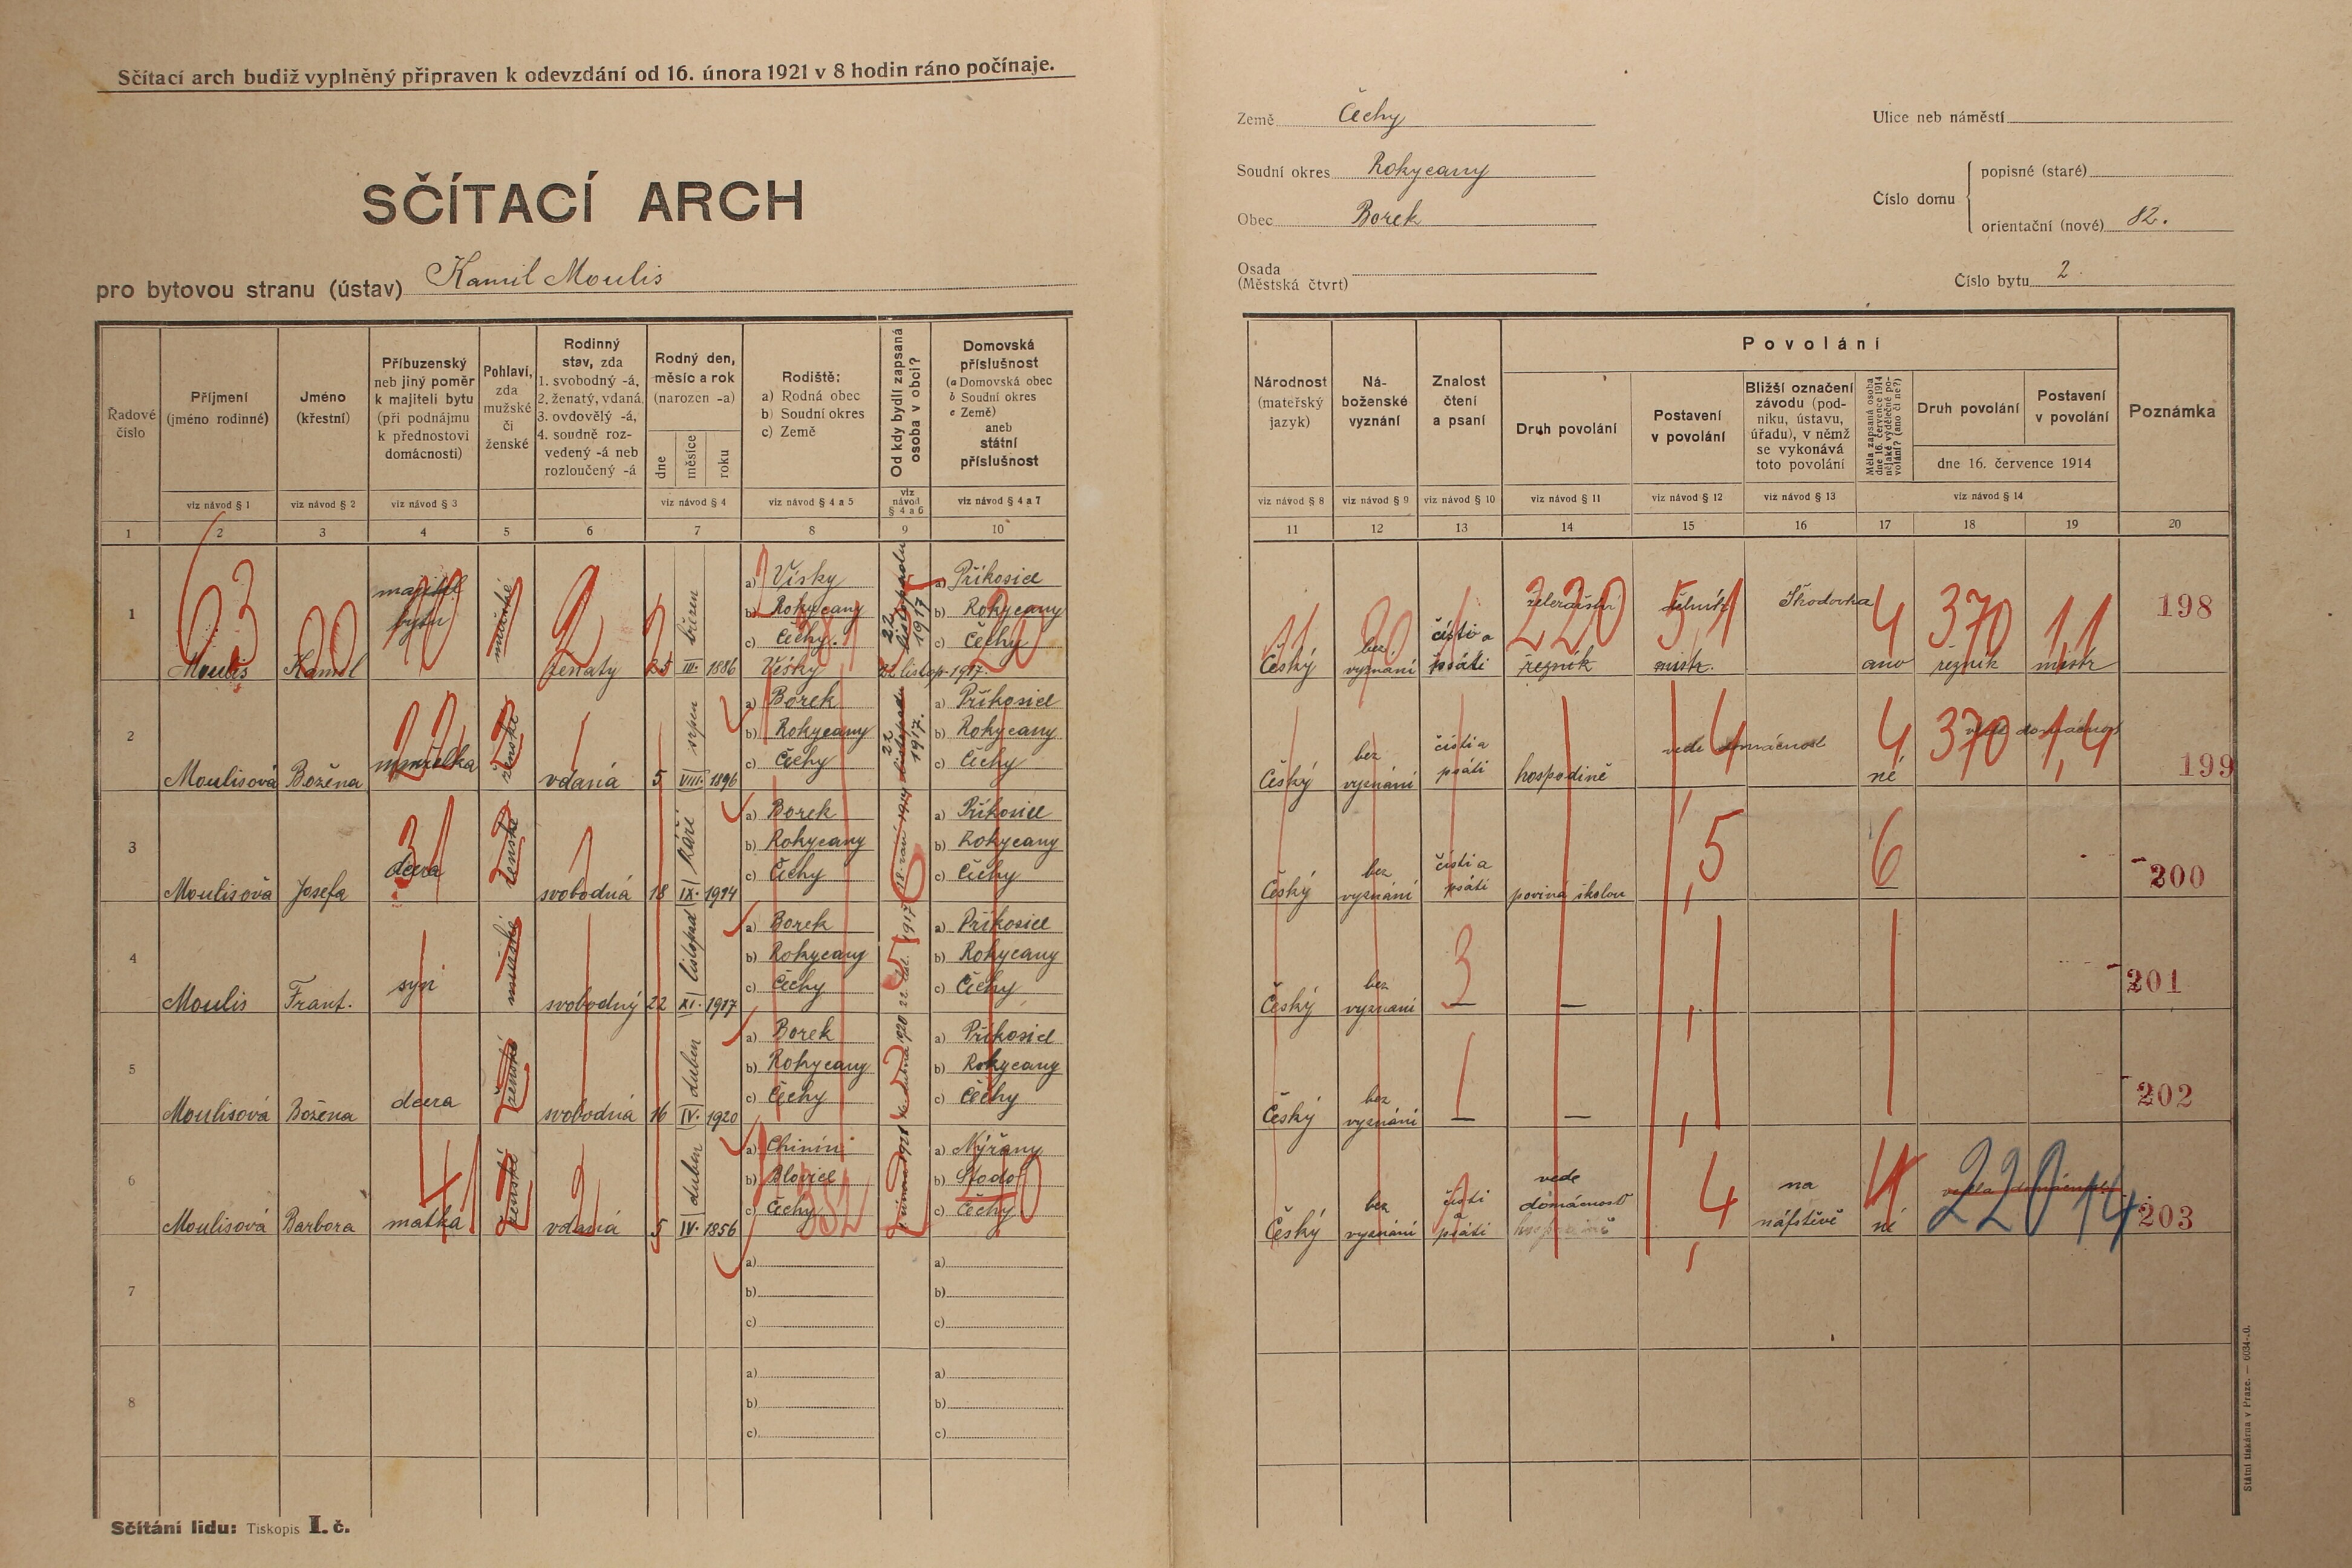 Sčítací arch budiž vyplněný připraven k odevzdání od 16. února 1921 v 8 hodin ráno počínaje.
SČÍTACÍ ARCH
pro bytovou stranu (ústav) Kamil Moulis
Země Čechy
Soudní okres Rokycany
Obec Borek
Osada
(Městská čtvrt)
Ulice neb náměstí
Číslo domu
popisné (staré)
orientační (nové) 82.
Číslo bytu 2
Řadové číslo
Příjmení (jméno rodinné)
Jméno (křestní)
Příbuzenský neb jiný poměr k majiteli bytu (při podnájmu k přednostovi domácnosti)
Pohlaví, zda mužské či ženské
Rodinný stav, zda 1. svobodný -á, 2. ženatý, vdaná, 3. ovdovělý -á, 4. soudně rozvedený -á neb rozloučený -á
Rodný den, měsíc a rok (narozen -a)
dne měsíce roku
Rodiště:
a) Rodná obec
b) Soudní okres
c) Země
Od kdy bydlí zapsaná osoba v obci?
Domovská příslušnost
(a Domovská obec
b Soudní okres
c Země)
aneb
státní příslušnost
Národnost (mateřský jazyk)
Náboženské vyznání
Znalost čtení a psaní
Povolání
Druh povolání
Postavení v povolání
Bližší označení závodu (podniku, ústavu, úřadu), v němž se vykonává toto povolání
Měla zapsaná osoba dne 16. července 1914 nějaké výdělečné povolání? (ano či ne?)
Druh povolání
Postavení v povolání
dne 16. července 1914
Poznámka
viz návod § 1
viz návod § 2
viz návod § 3
viz návod § 4
viz návod § 4 a 5
viz návod § 4 a 6
viz návod § 4 a 7
viz návod § 8
viz návod § 9
viz návod § 10
viz návod § 11
viz návod § 12
viz návod § 13
viz návod § 14
1 2 3 4 5 6 7 8 9 10 11 12 13 14 15 16 17 18 19 20
1 Moulis Kamil majitel bytu mužské ženatý 25 III. březen 1886
a) Vísky
b) Rokycany
c) Čechy
Víský
22 listopadu 1917
22 listop. 1917.
a) Příkosice
b) Rokycany
c) Čechy
Český bez vyznání čísti a psáti
řezník mistr. Škodovka ano řezník mistr 198
63 10 2 20 220 5,1 4 370 1,1
2 Moulisová Božena manželka ženské vdaná 5 VIII. srpen 1896
a) Borek
b) Rokycany
c) Čechy
22 listopadu 1917.
a) Příkosice
b) Rokycany
c) Čechy
Český bez vyznání čísti a psáti hospodině vede domácnost né vede domácnost 199
22 2 4 4 370 1,4
3 Moulisová Josefa dcera ženské svobodná 18 IX. září 1914
a) Borek
b) Rokycany
c) Čechy
18 září 1914
a) Příkosice
b) Rokycany
c) Čechy
Český bez vyznání čísti a psáti povina školou 200
31 2 6 5 6
4 Moulis Frant. syn mužské svobodný 22 XI. listopad 1917
a) Borek
b) Rokycany
c) Čechy
22 list. 1917
a) Příkosice
b) Rokycany
c) Čechy
Český bez vyznaní — — 201
5 3
5 Moulisová Božena dcera ženské svobodná 16 IV. duben 1920
a) Borek
b) Rokycany
c) Čechy
16 dubna 1920
a) Příkosice
b) Rokycany
c) Čechy
Český bez vyznání — — 202
6 Moulisová Barbora matka ženské vdaná 5 IV. duben 1856
a) Chinín
b) Blovice
c) Čechy
a) Nýřany
b) Stodo
c) Čechy
Český bez vyznání čísti a psáti vede domácnost na náfstěvě né 203
41 2 2 382 4 4 220 14
7
a)
b)
c)
a)
b)
c)
8
a)
b)
c)
a)
b)
c)
Sčítání lidu: Tiskopis I. č.
Státní tiskárna v Praze. — 6034-.0.